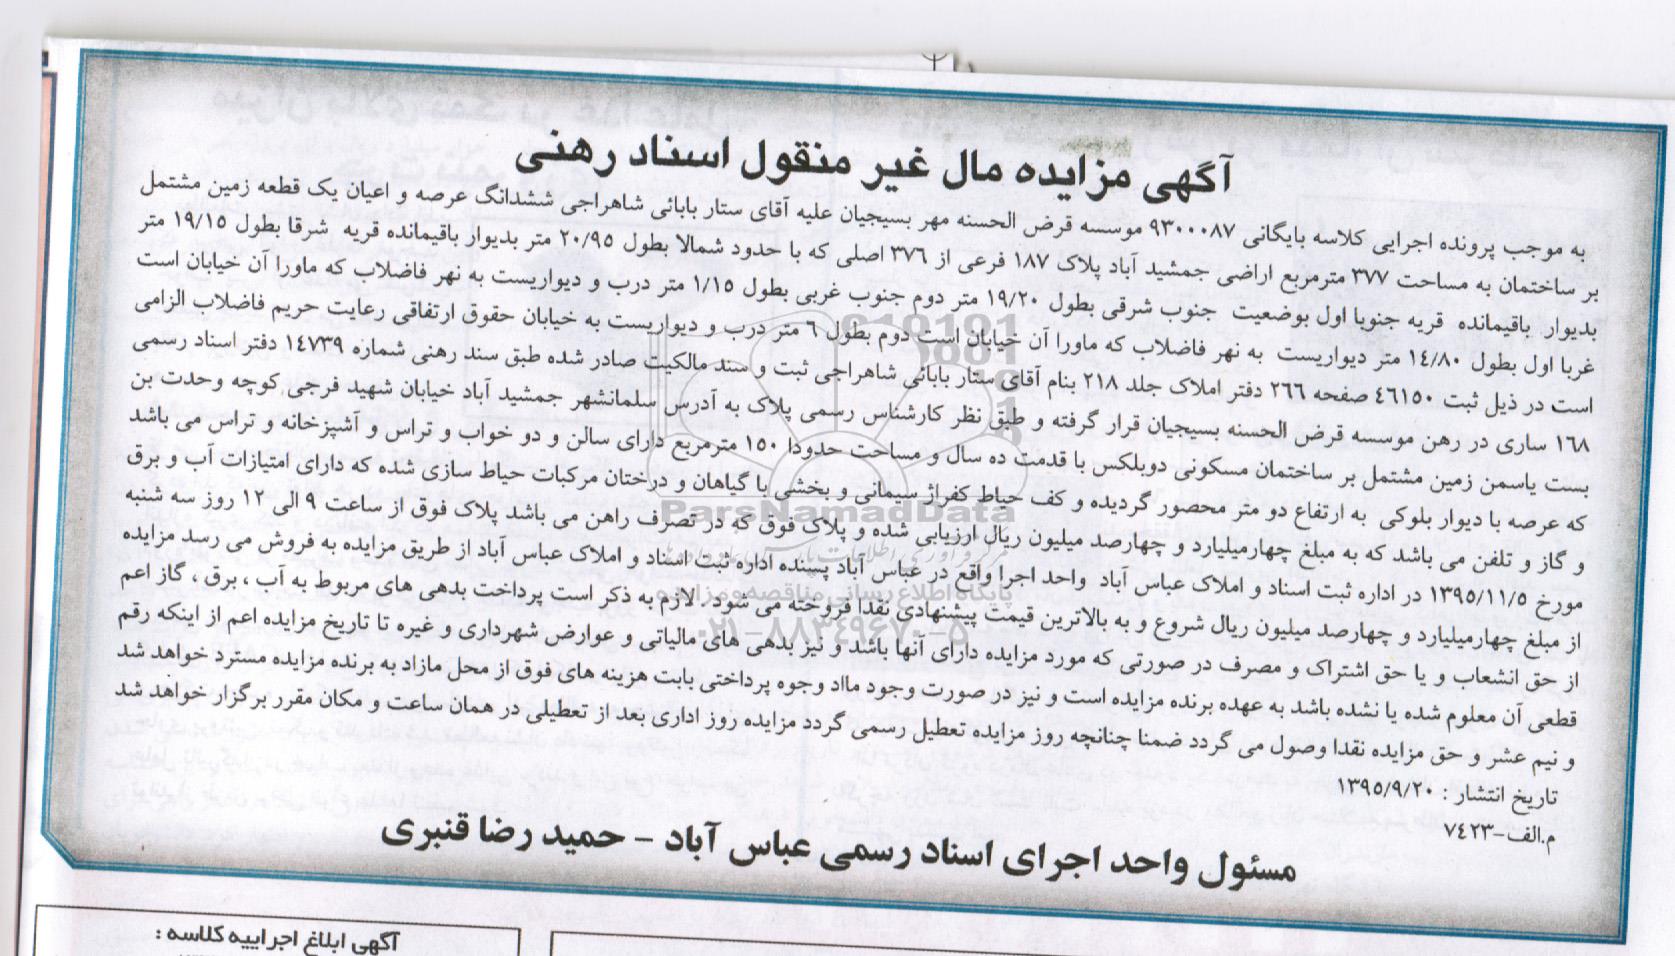 آگهی مزایده مال غیر منقول اسناد رهنی
به موجب پرونده اجرایی کلاسه بایگانی ۹۳۰۰۰۸۷ موسسه قرض الحسنه مهر بسیجیان علیه آقای ستار بابائی شاهراجی ششدانگ عرصه و اعیان یک قطعه زمین مشتمل
بر ساختمان به مساحت ۳۷۷ مترمربع اراضی جمشید آباد پلاک ۱۸۷ فرعی از ۳۷۶ اصلی که با حدود شمالا بطول ۲۰/۹۵ متر بدیوار باقیمانده قریه شرقا بطول ۱۹/۱۵ متر
بدیوار باقیمانده قریه جنوبا اول بوضعیت جنوب شرقی بطول ۱۹/۲۰ متر دوم جنوب غربی بطول ۱/۱۵ متر درب و دیواریست به نهر فاضلاب که ماورا آن خیابان است
غربا اول بطول ۱۴/۸۰ متر دیواریست به نهر فاضلاب که ماورا آن خیابان است دوم بطول ۶ متر درب و دیواریست به خیابان حقوق ارتفاقی رعایت حریم فاضلاب الزامی
است در ذیل ثبت ۴۶۱۵۰ صفحه ۲۶۶ دفتر املاک جلد ۲۱۸ بنام آقای ستار بابائی شاهراجی ثبت و سند مالکیت صادر شده طبق سند رهنی شماره ۱۴۷۳۹ دفتر اسناد رسمی
۱۶۸ ساری در رهن موسسه قرض الحسنه بسیجیان قرار گرفته و طبق نظر کارشناس رسمی پلاک به آدرس سلمانشهر جمشید آباد خیابان شهید فرجی کوچه وحدت بن
بست یاسمن زمین مشتمل بر ساختمان مسکونی دوبلکس با قدمت ده سال و مساحت حدودا ۱۵۰ مترمربع دارای سالن و دو خواب و تراس و آشپزخانه و تراس می باشد
که عرصه با دیوار بلوکی به ارتفاع دو متر محصور گردیده و کف حیاط کفراژ سیمانی و بخشی با گیاهان و درختان مرکبات حیاط سازی شده که دارای امتیازات آب و برق
و گاز و تلفن می باشد که به مبلغ چهارمیلیارد و چهارصد میلیون ریال ارزیابی شده و پلاک فوق که در تصرف راهن می باشد پلاک فوق از ساعت ۹ الی ۱۲ روز سه شنبه
مورخ ۱۳۹۵/۱۱/۵ در اداره ثبت اسناد و املاک عباس آباد واحد اجرا واقع در عباس آباد پسنده اداره ثبت اسناد و املاک عباس آباد از طریق مزایده به فروش می رسد مزایده
از مبلغ چهارمیلیارد و چهارصد میلیون ریال شروع و به بالاترین قیمت پیشنهادی نقدا فروخته می شود . لازم به ذکر است پرداخت بدهی های مربوط به آب ، برق ، گاز اعم
از حق انشعاب و یا حق اشتراک و مصرف در صورتی که مورد مزایده دارای آنها باشد و نیز بدهی های مالیاتی و عوارض شهرداری و غیره تا تاریخ مزایده اعم از اینکه رقم
قطعی آن معلوم شده یا نشده باشد به عهده برنده مزایده است و نیز در صورت وجود مااد وجوه پرداختی بابت هزینه های فوق از محل مازاد به برنده مزایده مسترد خواهد شد
و نیم عشر و حق مزایده نقدا وصول می گردد ضمنا چنانچه روز مزایده تعطیل رسمی گردد مزایده روز اداری بعد از تعطیلی در همان ساعت و مکان مقرر برگزار خواهد شد
تاریخ انتشار : ۱۳۹۵/۹/۲۰
م.الف-۷۴۲۳
مسئول واحد اجرای اسناد رسمی عباس آباد - حمید رضا قنبری
ParsNamadData
پایگاه اطلاع رسانی مناقصه و مزایده
۰۲۱-۸۸۳۴۹۶۷۰-۵
آگهی ابلاغ اجراییه کلاسه :